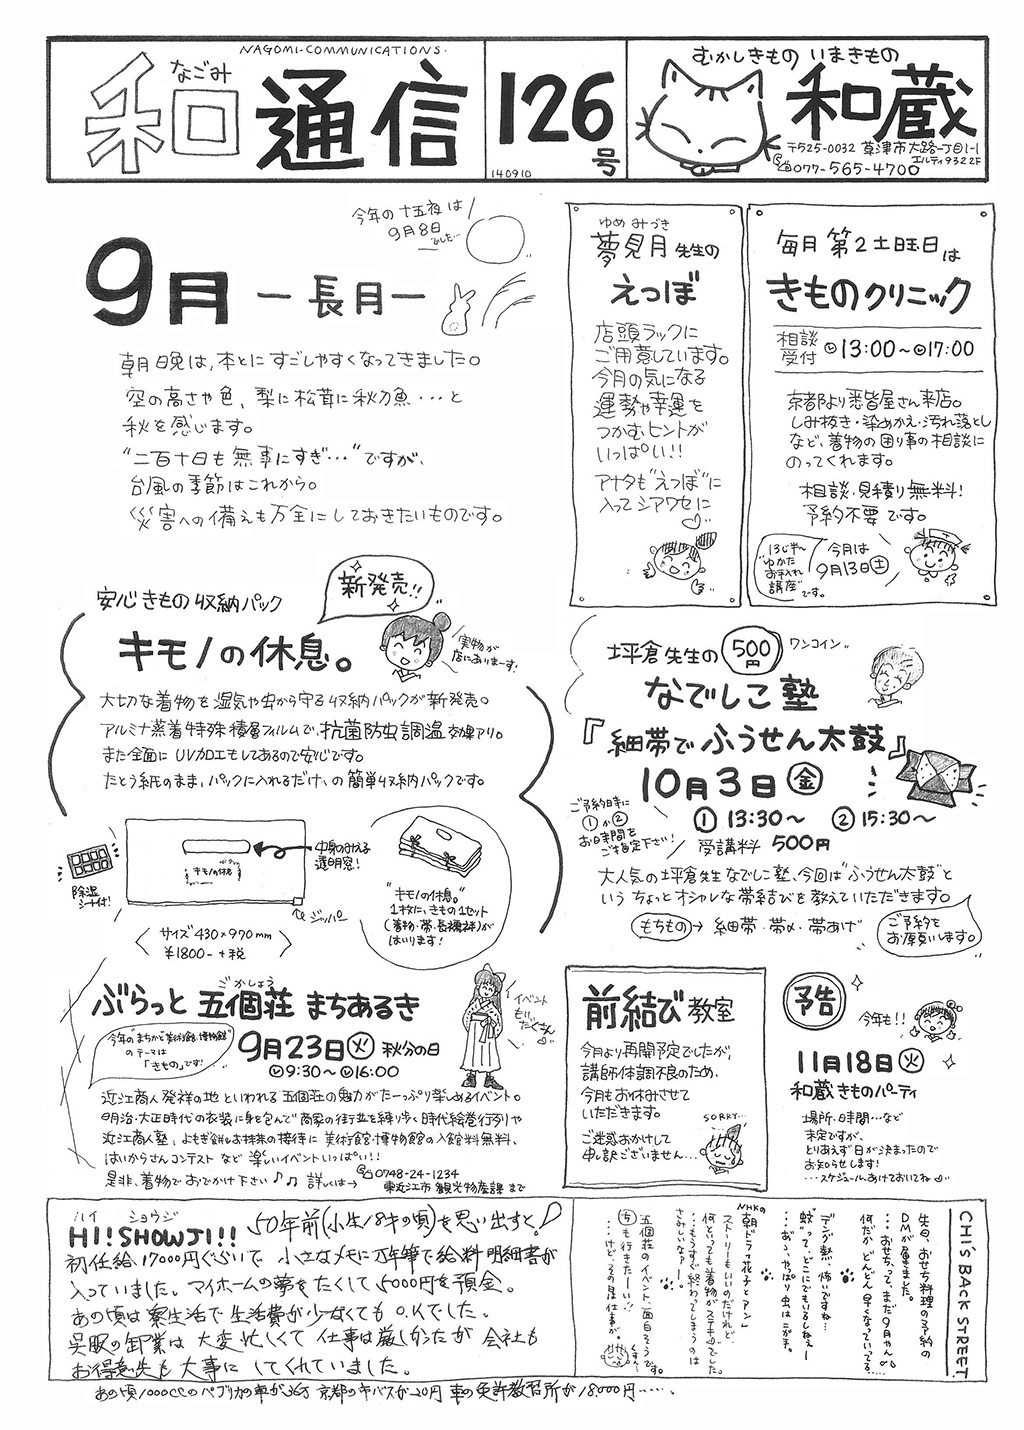 NAGOMI-COMMUNICATIONS.
なごみ
和通信
126号
140910
むかしきもの いまきもの
和蔵
〒525-0032 草津市大路一丁目1-1
エルティ932 2F
☎077-565-4700
今年の十五夜は
9月8日
でした…
9月 ー長月ー
朝晩は、本とにすごしやすくなってきました。
空の高さや色、梨に松茸に秋刀魚・・・と
秋を感じます。
"二百十日も無事にすぎ…"ですが、
台風の季節はこれから。
災害への備えも万全にしておきたいものです。
ゆめみづき
夢見月先生の
えつぼ
店頭ラックに
ご用意しています。
今月の気になる
運勢や幸運を
つかむヒントが
いっぱい!!
アナタも"えつぼ"に
入ってシアワセに
毎月第2土曜日は
きものクリニック
相談受付 13:00～17:00
京都より悉皆屋さん来店。
しみ抜き・染めかえ・汚れ落とし
など、着物の困り事の相談に
のってくれます。
相談・見積り無料!
予約不要です。
今月は
9月13日土
13じ半～
"ゆかた
お手入れ
講座"です。
安心きもの収納パック
新発売!!
キモノの休息。
実物が
店にありまーす!
大切な着物を湿気や虫から守る収納パックが新発売。
アルミナ蒸着特殊積層フィルムで、抗菌防虫調温効果アリ。
また全面にUV加工もしてあるので安心です。
たとう紙のまま、パックに入れるだけ、の簡単収納パックです。
除湿
シート付!
キモノの休息
中身のみえる
透明窓!
ジッパー
〈サイズ430×970mm
¥1800-+税〉
"キモノの休息。"
1枚に、きもの1セット
(着物・帯・長襦袢)が
はいります!
坪倉先生の 500円 ワンコイン
なでしこ塾
『細帯でふうせん太鼓』
10月3日金
① 13:30～ ② 15:30～
受講料 500円
ご予約時に
①か②
お日時間を
ご指定下さい!
大人気の坪倉先生なでしこ塾、今回は"ふうせん太鼓"と
いうちょっとオシャレな帯結びを教えていただきます。
もちもの→細帯・帯〆・帯あげ
ご予約を
お願いします。
ごかしょう
ぶらっと五個荘まちあるき
イベント
もりだくさん
今年の"まちかど美術館・博物館"
のテーマは
「きもの」です!
9月23日火 秋分の日
9:30～16:00
近江商人発祥の地といわれる五個荘の魅力がたーっぷり楽しめるイベント。
明治・大正時代の衣装に身を包んで商家の街並を練り歩く時代絵巻行列や
近江商人塾、よもぎ餅&お抹茶の接待に美術館・博物館の入館料無料、
はいからさんコンテストなど楽しいイベントいっぱい!!
是非、着物でおでかけ下さい♪♫ 詳しくは→☎0748-24-1234
東近江市観光物産課まで
前結び教室
今月より再開予定でしたが、
講師体調不良のため、
今月もお休みさせて
いただきます。
ご迷惑おかけして
申し訳ございません…
SORRY…
予告
今年も!!
11月18日火
和蔵きものパーティ
場所・時間…など
未定ですが、
とりあえず日が決まったので
お知らせします!
…スケジュール、あけておいてね
ハイ ショウジ
HI! SHOWJI!!
50年前(小生18才の頃)を思い出すと!
初任給17000円ぐらいで、小さなメモに万年筆で給料明細書が
入っていました。マイホームの夢をたくして5000円を預金。
あの頃は寮生活で生活費が少なくてもO.Kでした。
呉服の卸業は大変忙しくて仕事は厳しかったが会社も
お得意先も大事にしてくれていました。
あの頃1000ccのパブリカの車が36万 京都の市バスが20円 車の免許教習所が18,000円……、
CHI'S BACK STREET
先日、おせち料理の予約の
DMが届きました。
"おせち"って、まだ9月やん
何だか、どんどん早くなっていってる…
デング熱、怖いですね…
"蚊"って、どこにでもいるしねぇー
…あぁ、やっぱり虫はニガ手。
NHKの
朝ドラ「花子とアン」
ストーリーもいいのだけれど
何といっても着物がステキでした。
…もうすぐ終わってしまうのは
さみしいなぁー。
五個荘のイベント、面白そうです。
行きたーい!!
…けど、その日は仕事が。